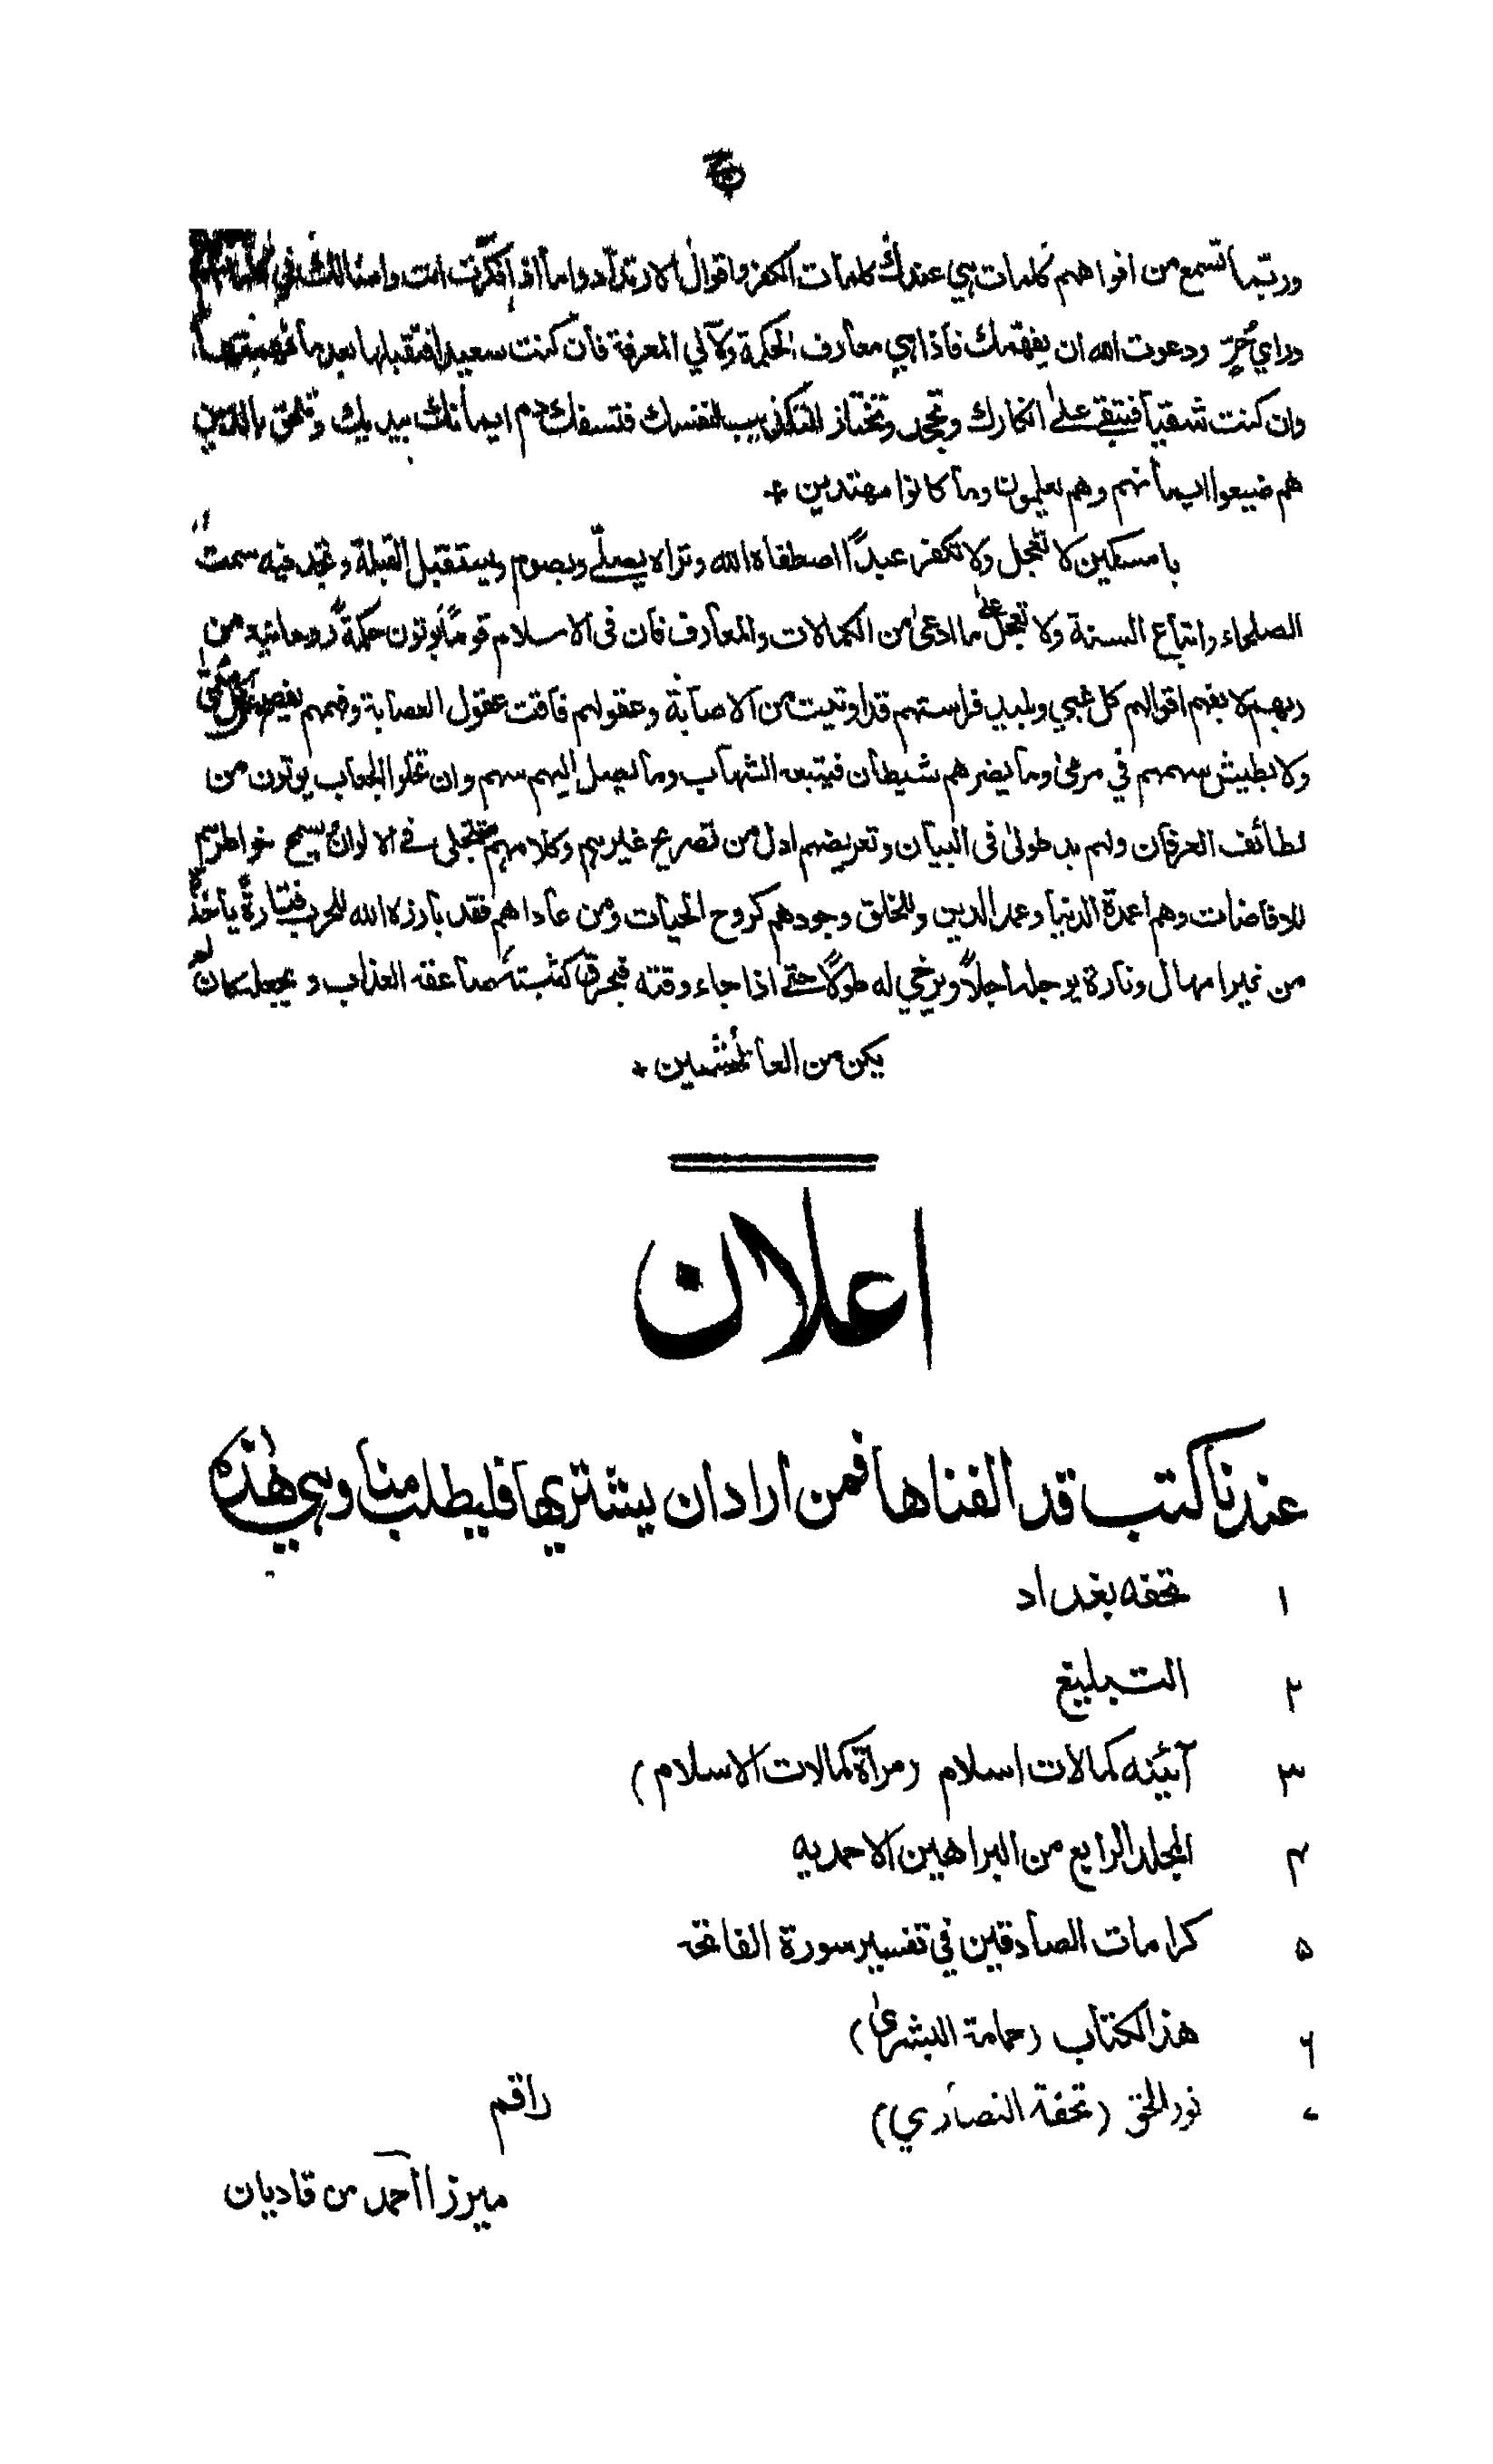 ج
وربّما تسمع من افواههم كلمات هي عندك كلمات الكفر واقوال الارتداد واما اذا فكّرت انت وامثالك في
وراي حُرٍّ ودعوت الله ان يفهّمك فاذا هي معارف الحكمة ولآلي المعرفة فان كنت سعيدا فتقبلها بعد ما فهمتها
وان كنت شقيا فتبقى على انكارك وتجحد وتختار التكذيب لنفسك فتسفك دم ايمانك بيديك وتلحق بالذين
هم ضيعوا ايمانهم وهم يعلمون وما كانوا مهتدين +
يا مسكين لا تعجل ولا تكفر عبدًا اصطفاه الله وتراه يصلّى ويصوم ويستقبل القبلة وتجد فيه سمت
الصلحاء واتباع السنة ولا تعجل على ما ادعى من الكمالات والمعارف فان فى الاسلام قومًا يوتون حكمةً روحانيةً من
ربهم لا يفهم اقوالهم كل غبي وبليد فراستهم قد اوتيت من الاصابة وعقولهم فاقت عقول العصابة وفهمهم
ولا يطيش سهمهم في مرمى وما يضرهم شيطان فيتبعه الشهاب وما يصل اليهم سهم وان تخلوا الجعاب يوتون من
لطائف العرفان ولهم يد طولىٰ فى البيان وتعريضهم ادل من تصريح غيرهم وكلامهم يتجلى فى الالوان يسمح خواطرهم
للافاضات وهم اعمدة الدنيا وعمد الدين وللخلق وجودهم كروح الحيات ومن عاداهم فقد بارزه الله للحرب فتارةً ياخذ
من غير امهال وتارة يوجله اجلًا ويرخي له طولًا حتى اذا جاء وقته فيحرق صاعقه العذاب و يجعله كان لم
يكن من العائشين +
اعلان
عندنا كتب قد الفناها فمن اراد ان يشتريها فليطلب منا وهي هٰذه
١ تحفه بغداد
٢ التبليغ
٣ آئينه كمالات اسلام (مرآة كمالات الاسلام)
۴ المجلد الرابع من البراهين الاحمديه
۵ كرامات الصادقين في تفسير سورة الفاتحة
۶ هذ الكتاب (حمامة البشرىٰ)
٧ نور الحق (تحفة النصاري)
راقم
ميرزا احمد من قاديان